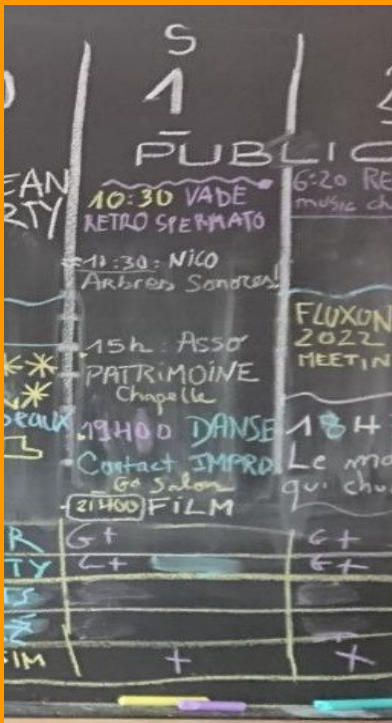 S
1
PUBLIC
EAN
RTY
10:30 VADE
RETRO SPERMATO
11:30: NiCO
Arbres Sonores!
15h: Asso
PATRiMOiNE
Chapelle
19H00 DANSE
Contact IMPRO
Gd Salon
21H00 FiLM
6:20 RE
music ch
FLUXON
2022
MEETIN
18H
Le mo
qui chu
beaux
R G+ G+
TY G+ G+
TS
FIM + +